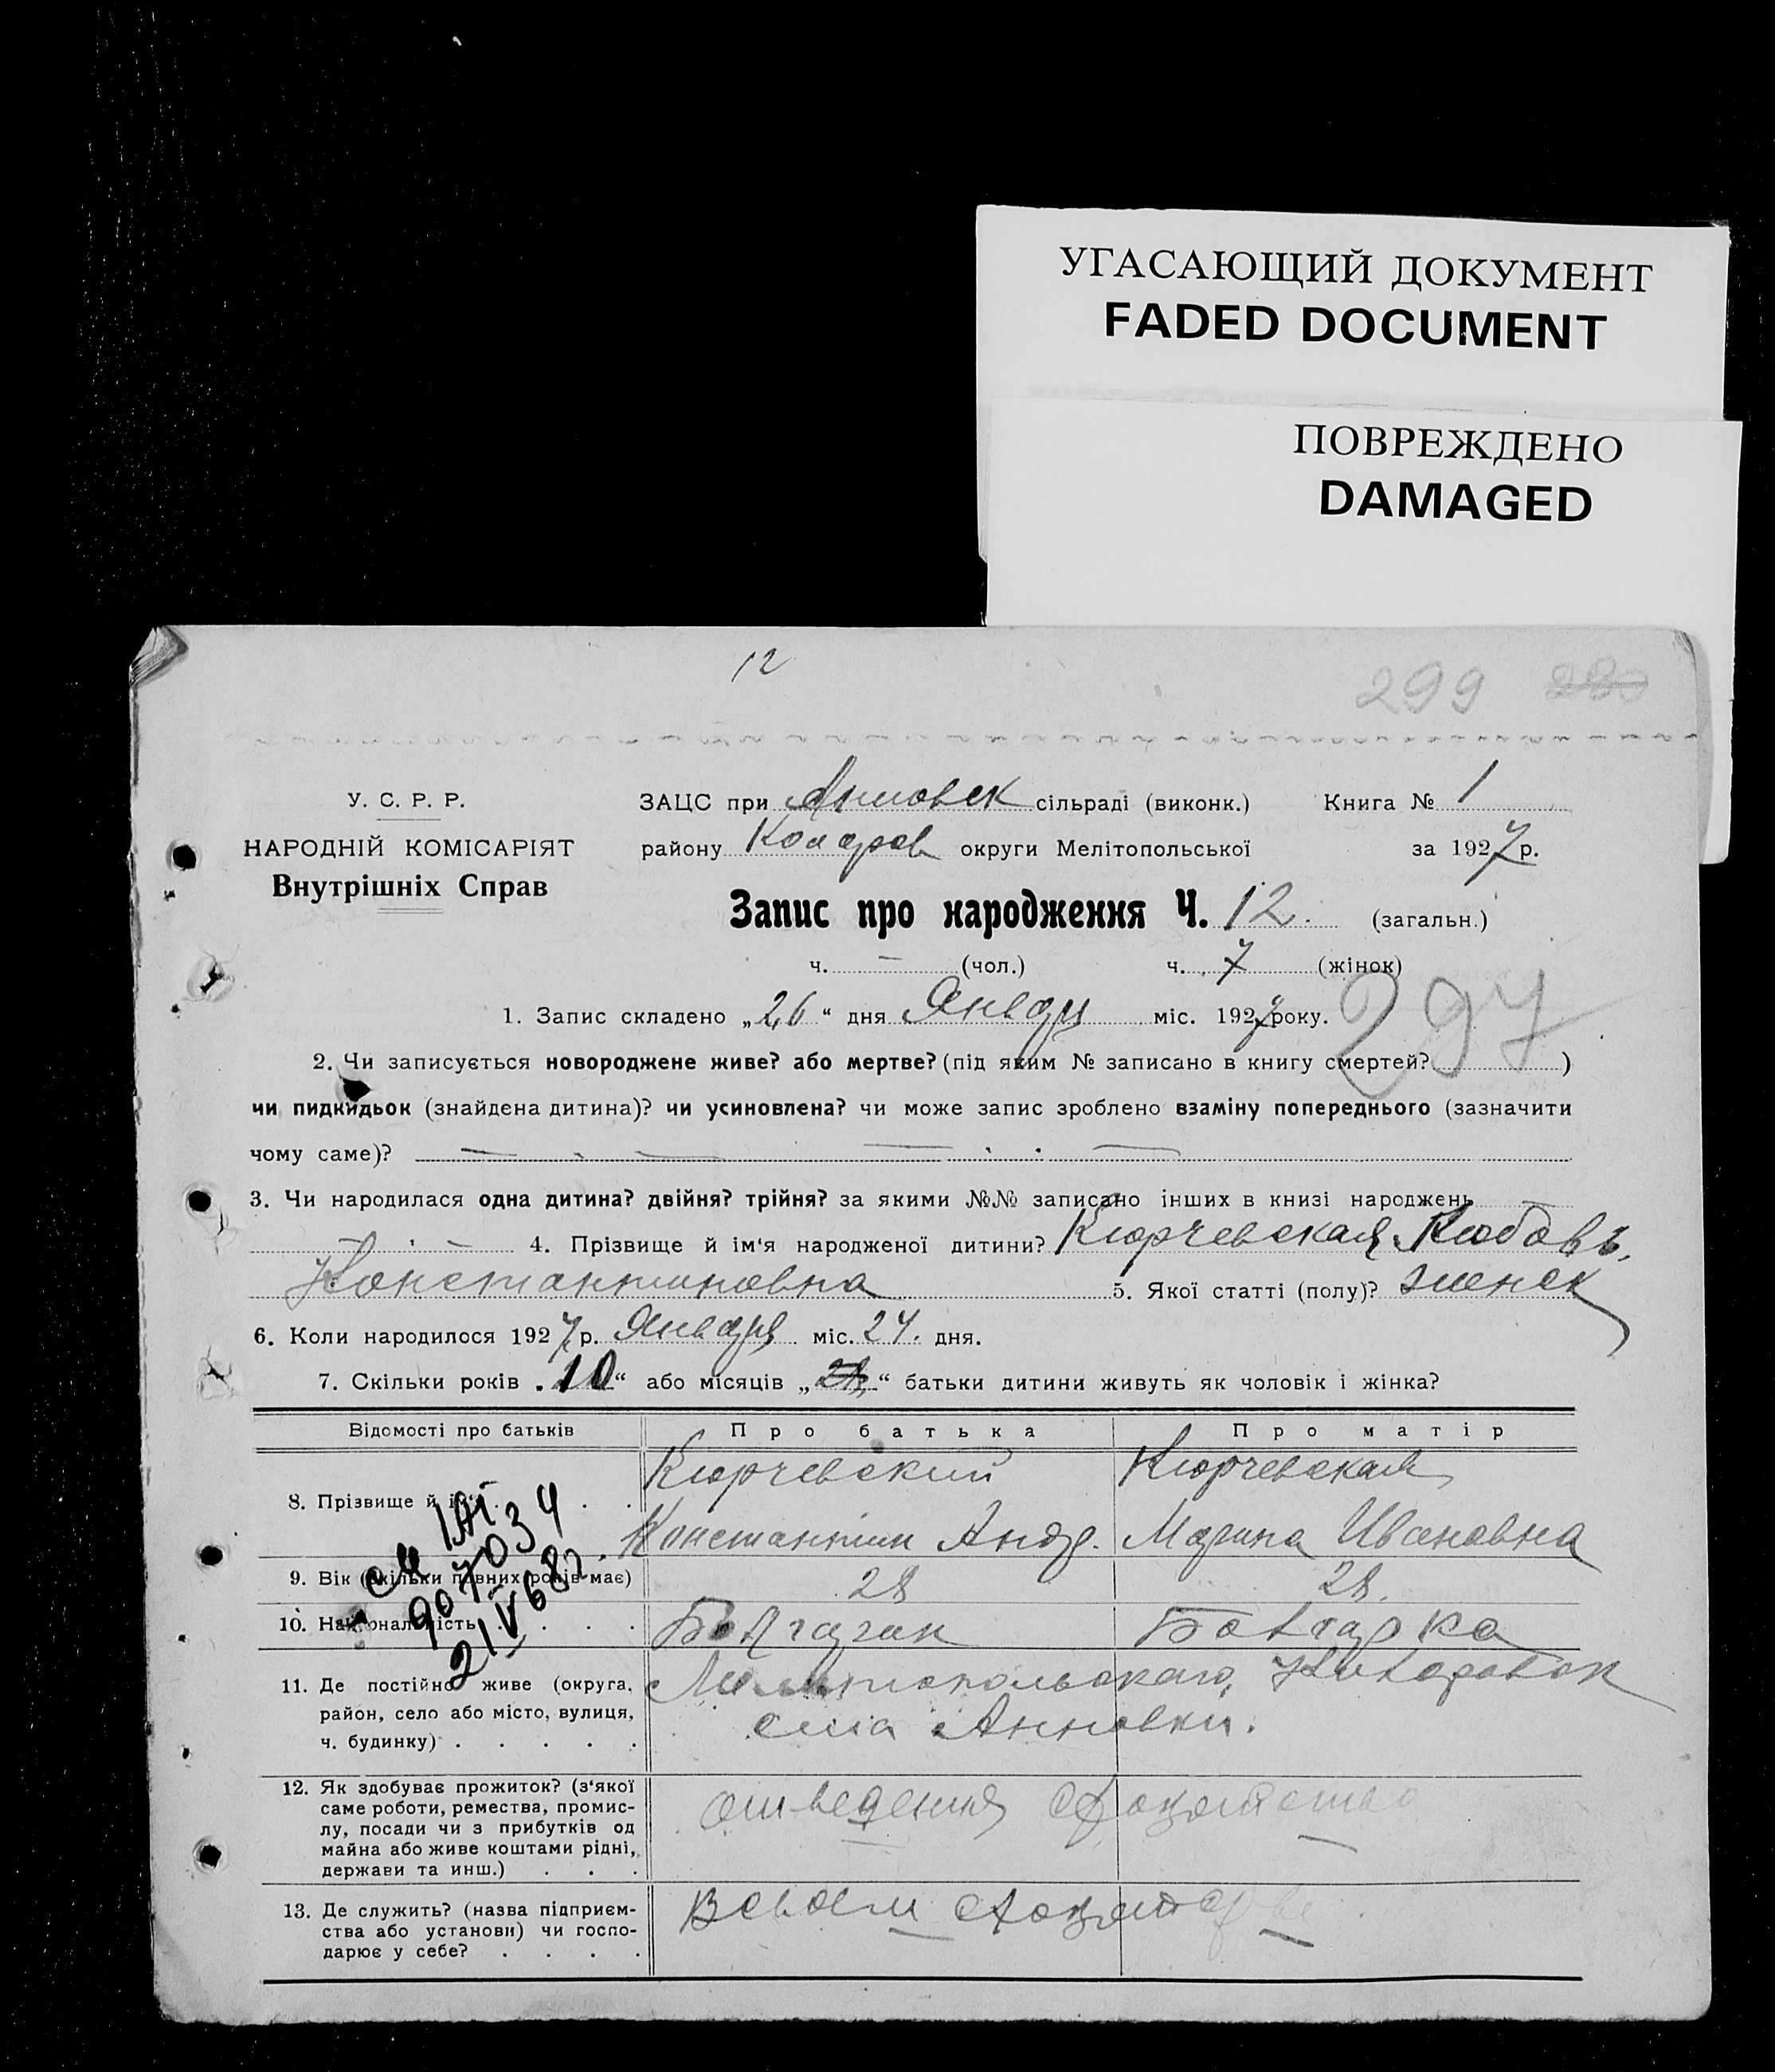 УГАСАЮЩИЙ ДОКУМЕНТ
FADED DOCUMENT
ПОВРЕЖДЕНО
DAMAGED
12
299
У. С. Р. Р.
НАРОДНІЙ КОМІСАРІЯТ
Внутрішніх Справ
ЗАЦС при Анновск сільраді (виконк.) Книга № 1
району Коларов округи Мелітопольської за 1927 р.
Запис про народження Ч. 12. (загальн.)
ч. — (чол.) ч. 7 (жінок)
297
1. Запис складено „26“ дня Января міс. 1927 року.
2. Чи записується новороджене живе? або мертве? (під яким № записано в книгу смертей? )
чи пидкидьок (знайдена дитина)? чи усиновлена? чи може запис зроблено взаміну попереднього (зазначити
чому саме)?
3. Чи народилася одна дитина? двійня? трійня? за якими №№ записано інших в книзі народжень
4. Прізвище й ім‘я народженої дитини? Кюрчевская Любовь,
Константиновна 5. Якої статті (полу)? женск
6. Коли народилося 1927 р. Января міс. 24. дня.
7. Скільки років „10“ або місяців „ “ батьки дитини живуть як чоловік і жінка?
Відомості про батьків Про батька Про матір
8. Прізвище й ім‘я Кюрчевский Кюрчевская
Константин Андр. Марина Ивановна
9. Вік (скільки повних років має) 28 28.
10. Національність Болгарин Болгарка
11. Де постійно живе (округа, район, село або місто, вулиця, ч. будинку) Мелитопольского,
села Анновки.
12. Як здобуває прожиток? (з‘якої
саме роботи, ремества, промис-
лу, посади чи з прибутків од
майна або живе коштами рідні,
держави та инш.)
13. Де служить? (назва підприєм-
ства або установи) чи госпо-
дарює у себе? В своем
907034